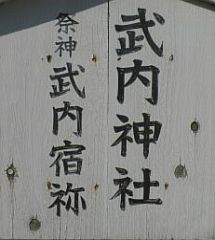 武内神社
祭神 武内宿祢